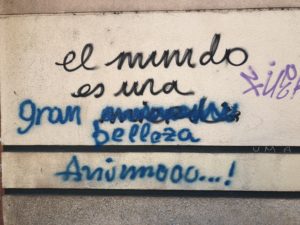 el mundo
es una
gran
belleza
Animooo...!
UMA